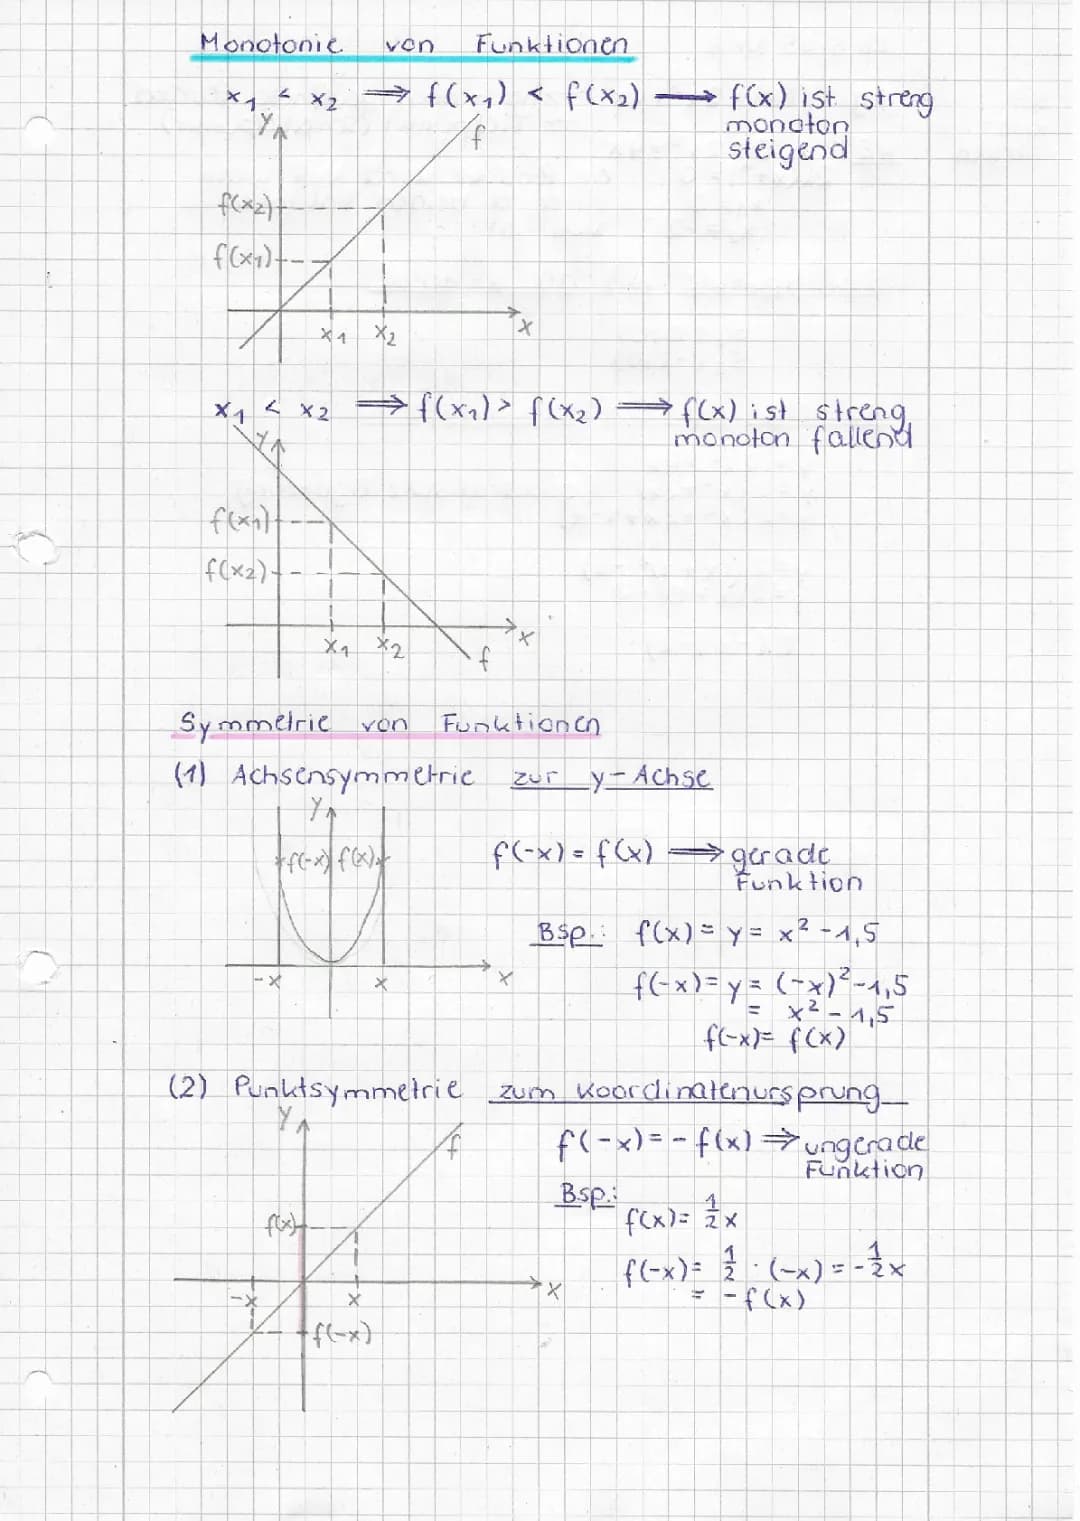 Monotonie von Funktionen
x₁ < x₂ ⟹ f(x₁) < f(x₂) ⟶ f(x) ist streng
monoton
steigend
y
f
f(x₂)
f(x₁)
x₁ x₂
x
x₁ < x₂ ⟹ f(x₁) > f(x₂) ⟹ f(x) ist streng
monoton fallend
y
f(x₁)
f(x₂)
x₁ x₂
x
f
Symmetrie von Funktionen
(1) Achsensymmetrie zur y-Achse
y
f(-x) f(x)
-x x x
f(-x) = f(x) ⟹ gerade
Funktion
Bsp.: f(x) = y = x² - 1,5
f(-x) = y = (-x)² - 1,5
= x² - 1,5
f(-x) = f(x)
(2) Punktsymmetrie zum Koordinatenursprung
y
f
f(x)
-x x x
f(-x)
f(-x) = - f(x) ⟹ ungerade
Funktion
Bsp.:
f(x) = ½ x
f(-x) = ½ · (-x) = - ½ x
= - f(x)